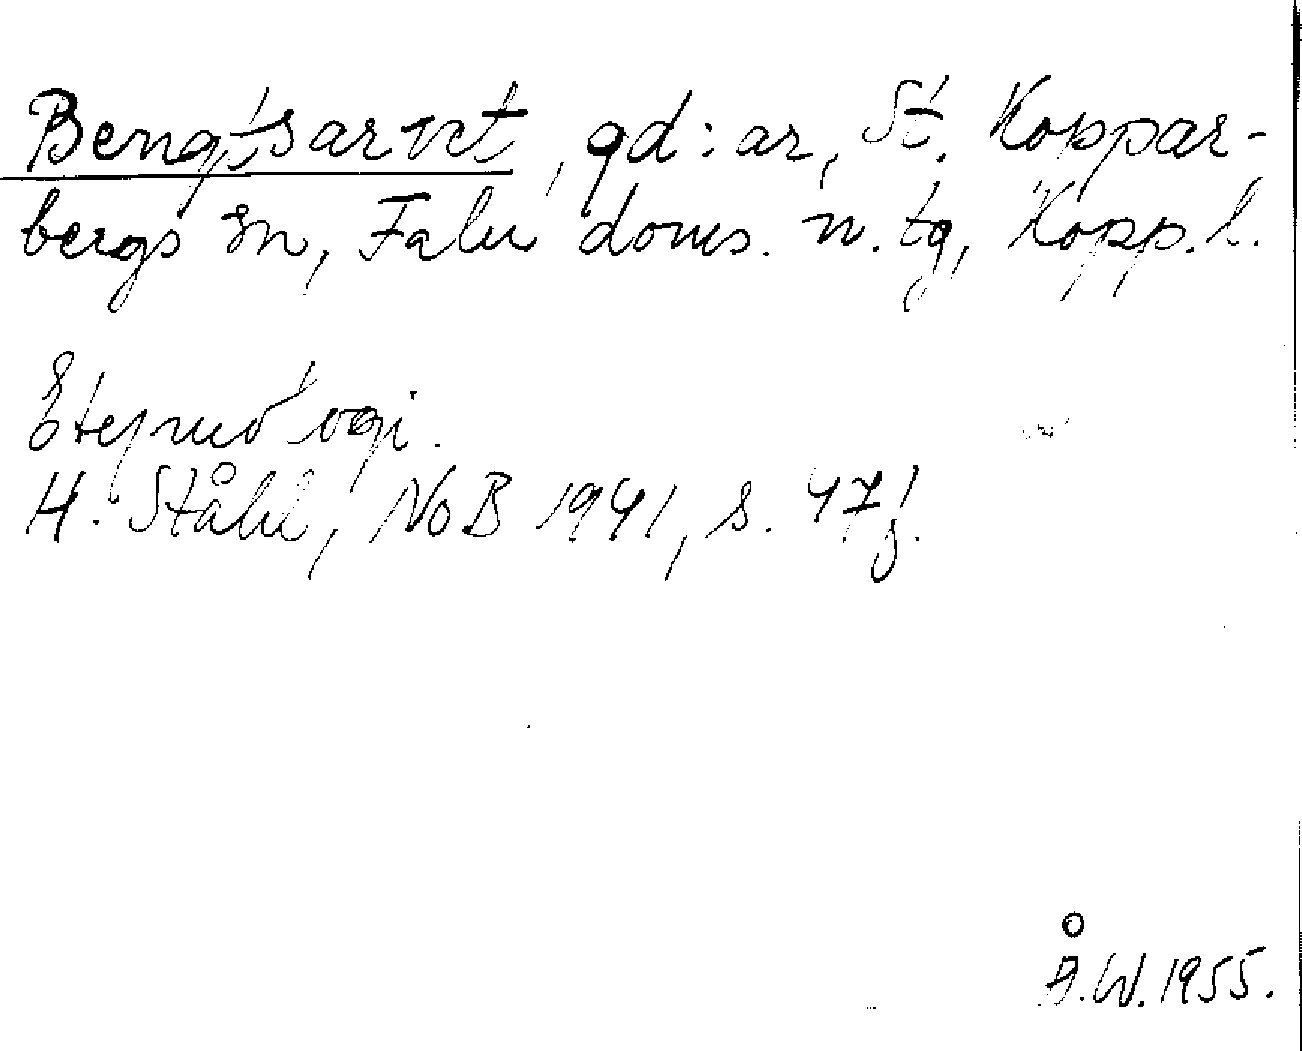 Bengtsarvet, gd:ar, St. Koppar-
bergs sn, Falu doms. n. tg, Kopp. l.
Etymologi.
H. Ståhl, NoB 1941, s. 47 f.
Å.W. 1955.